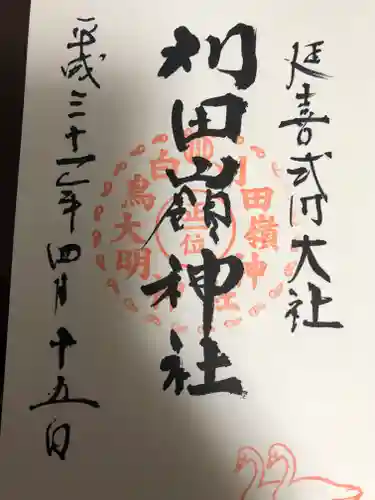 延喜式内大社
刈田嶺神社
平成三十一年四月十五日
刈田嶺神社
正一位
白鳥大明